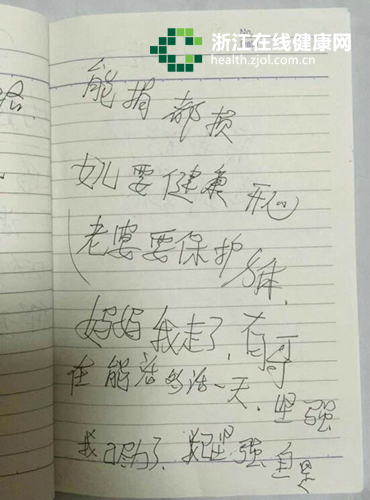 浙江在线健康网
health.zjol.com.cn
No.
能捐都捐
女儿要健康开心
老婆要保护身体.
妈妈我走了,有哥
在能活多活一天.坚强
我已尽力了,坚强